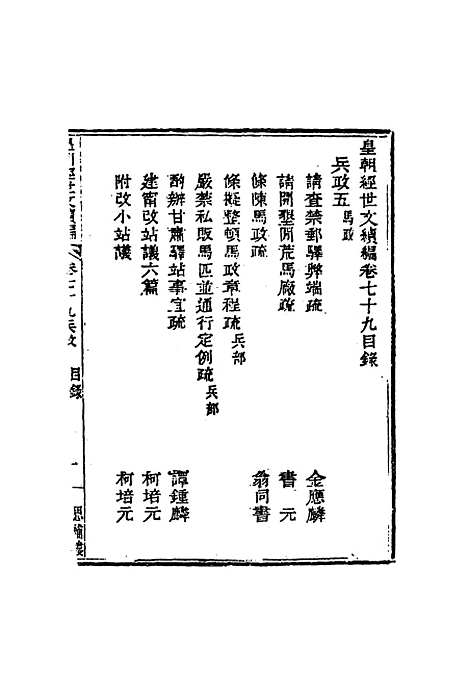 皇朝經世文續編卷七十九目錄
兵政五馬政
請查禁郵驛弊端疏 金應麟
請開墾閒荒馬廠疏 書元
條陳馬政疏 翁同書
條擬整頓馬政章程疏兵部
嚴禁私販馬匹並通行定例疏兵部
酌辦甘肅驛站事宜疏 譚鍾麟
建甯改站議六篇 柯培元
附改小站議 柯培元
皇朝經世文續編 卷七十九兵政 目錄 一 思補樓